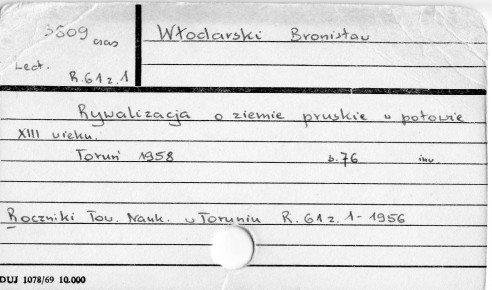 3509 czas
Włodarski Bronisław
Lect.
R.61 z.1
Rywalizacja o ziemie pruskie w połowie
XIII wieku.
Toruń 1958 s.76 inw.
Roczniki Tow. Nauk. w Toruniu R.61 z.1-1956
DUJ 1078/69 10.000